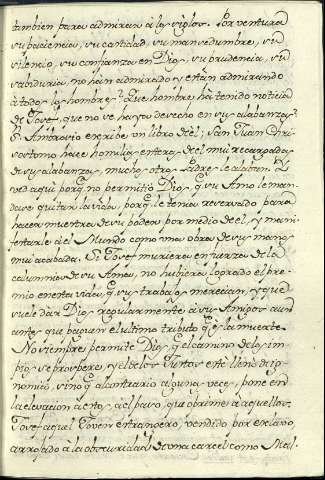 tambien para admirar a los siglos. Por ventura
su paciencia, su castidad, su mansedumbre, su
silencio, su confianza en Dios, su prudencia, su
sabiduria no han admirado y estan admirando
à todos los hombres? Que hombre ha tenido noticia
de Josef, que no se haya desecho en sus alabanzas?
S. Ambrosio escribe un libro de el; San Juan Chri-
sostomo hace homilias enteras de el mui recargadas
de sus alabanzas, muchos otros Padres le alaban. Y
ved aqui porq. no permitió Dios, q. su Amo le man-
dase quitar la vida, porq. le tenia reservado para
hacer muestra de su poder por medio de el, y mani-
festarle à el Mundo como una obra de sus manos
mui acabada. Si Josef muriera en fuerza de la
calumnia de su Ama, no hubiera logrado el pre-
mio en esta vida q. sus trabajos merecian, y que
suele dar Dios regularmente à sus Amigos aun
antes que paguen el ultimo tributo q. es la muerte.
No siempre permite Dios, q. el camino de los im-
pios se prospere, y el de los Justos esté lleno de ig-
nominia, sino q. al contrario algunas veces, pone en
la elevacion à estos, al paso, que oprime à aquellos.
Josef aquel Joven estrangero, vendido por esclavo,
arrojado à la obscuridad de una carcel como Mal-